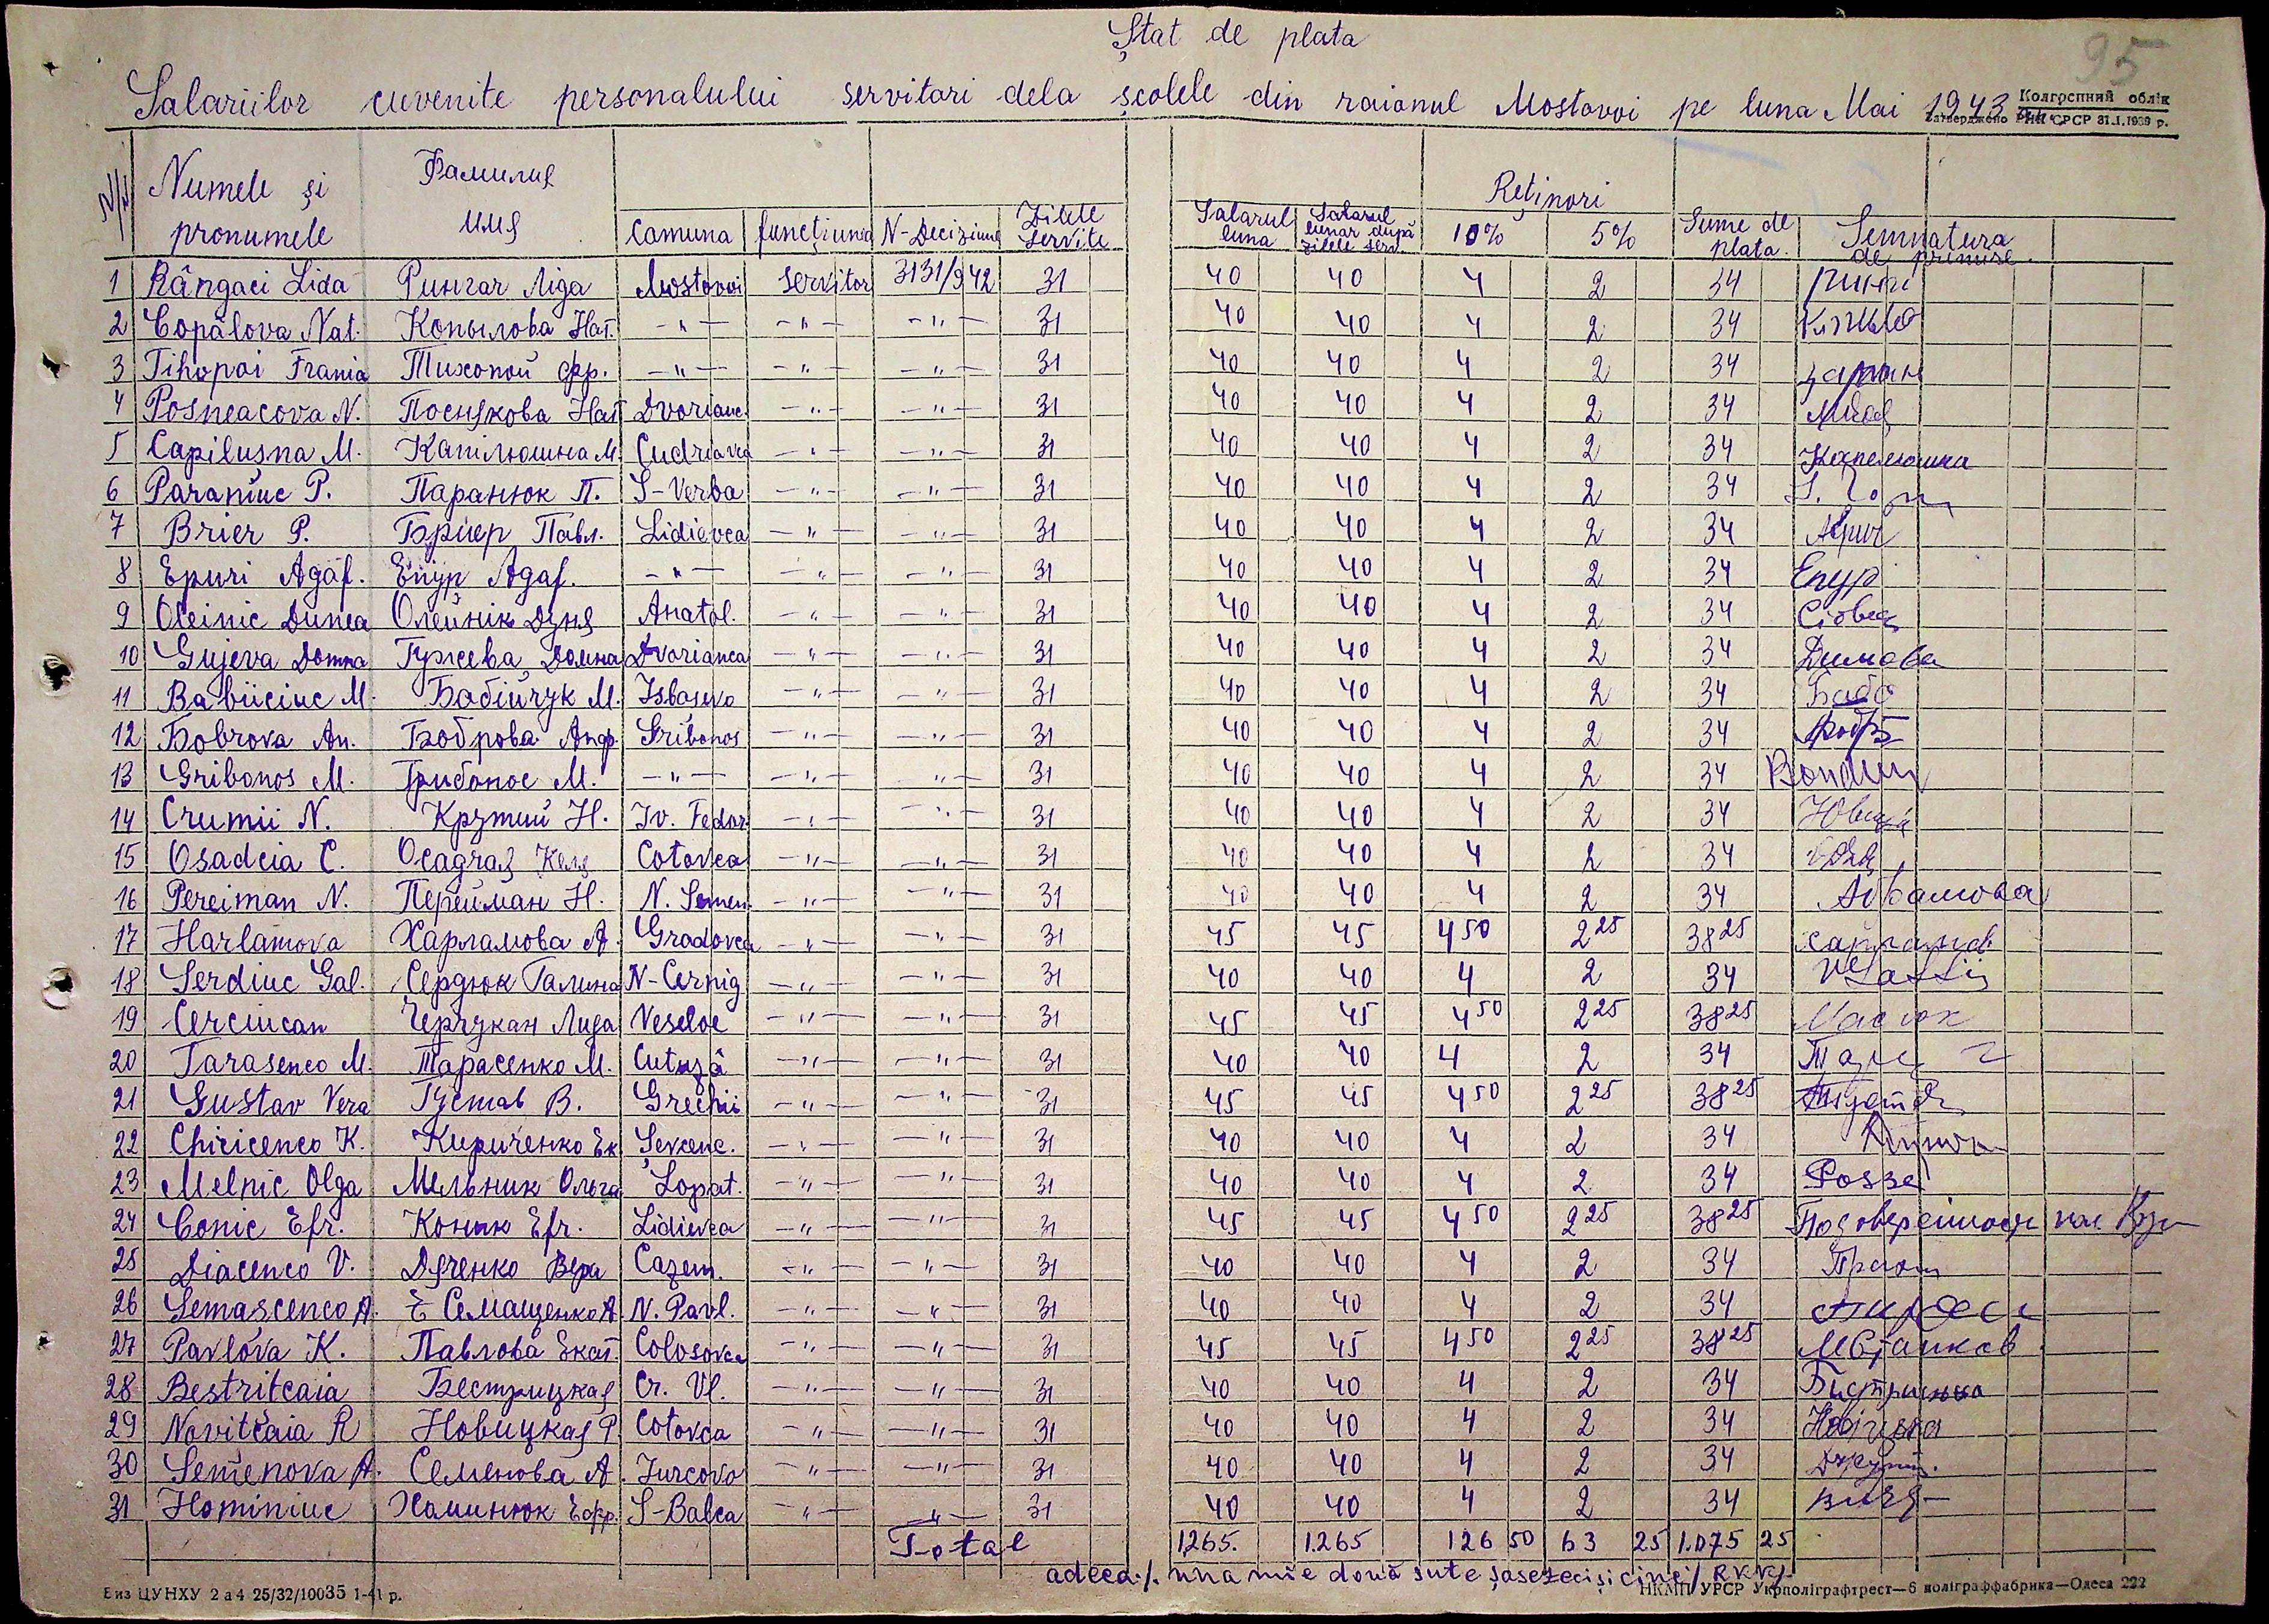 Ștat de plata
95
Salariilor cuvenite personalului servitari dela școlele din raionul Mostovoi pe luna Mai 1943
Колгоспний облік
Затверджено РНК СРСР 31.I.1939 р.
N/N Numele și pronumele Фамилия имя Comuna funcțiunia N-Deciziunii Zilele servite Salarul luna Salarul lunar după zilele serv. Rețineri 10% 5% Sume de plata. Semnatura de primire.
1 Rângaci Lida Рингач Лида Mostovoi Servitor 3131/942 31 40 40 4 2 34
2 Copâlova Nat. Копылова Нат. -"- -"- -"- 31 40 40 4 2 34
3 Tihopoi Frania Тихопой Фр. -"- -"- -"- 31 40 40 4 2 34
4 Posneacova N. Поснякова Нат Dvorianc. -"- -"- 31 40 40 4 2 34
5 Capilusna M. Капілюшна М. Cudriavca -"- -"- 31 40 40 4 2 34 Капелюшна
6 Paraniuc P. Паранюк П. S-Verba -"- -"- 31 40 40 4 2 34
7 Brier P. Бриер Павл. Lidievca -"- -"- 31 40 40 4 2 34
8 Epuri Agaf. Епур Agaf. -"- -"- -"- 31 40 40 4 2 34 Епур
9 Oleinic Dunea Олейнік Дуня Anatol. -"- -"- 31 40 40 4 2 34
10 Gujeva Domna Гужева Домна Dvorianca -"- -"- 31 40 40 4 2 34 Димова
11 Babiiciuc M. Бабійчук М. -"- -"- 31 40 40 4 2 34 Бабо
12 Бobrova An. Боброва Анф. Gribonos -"- -"- 31 40 40 4 2 34
13 Gribonos M. Грибонос М. -"- -"- -"- 31 40 40 4 2 34
14 Crumii N. Крутий Н. Iv. Fedor. -"- -"- 31 40 40 4 2 34
15 Osadcia C. Осадчая Cotovca -"- -"- 31 40 40 4 2 34
16 Pereiman N. Перейман Н. N. Semen. -"- -"- 31 40 40 4 2 34 Абрамова
17 Harlamova Харламова А. Gradovca -"- -"- 31 45 45 4 50 2 25 38 25
18 Serdiuc Gal. Сердюк Галина N-Cernig -"- -"- 31 40 40 4 2 34
19 Cerciucan Черчукан Лида Veseloe -"- -"- 31 45 45 4 50 2 25 38 25
20 Tarasenco M. Тарасенко М. Cutuzâ -"- -"- 31 40 40 4 2 34
21 Gustav Vera Густав В. Grechii -"- -"- 31 45 45 4 50 2 25 38 25
22 Chiricenco K. Кириченко Ек Șevcenc. -"- -"- 31 40 40 4 2 34
23 Melnic Olga Мельник Ольга Lopat. -"- -"- 31 40 40 4 2 34
24 Conic Efr. Коник Efr. Lidievca -"- -"- 31 45 45 4 50 2 25 38 25
25 Diacenco V. Дяченко Вера Cazem. -"- -"- 31 40 40 4 2 34
26 Semascenco A. Семащенко А N. Pavl. -"- -"- 31 40 40 4 2 34
27 Pavlova K. Павлова Екат. Colosovca -"- -"- 31 45 45 4 50 2 25 38 25
28 Bestritcaia Бестрицкая Cr. Vl. -"- -"- 31 40 40 4 2 34
29 Novitcaia R Новицкая Р. Cotovca -"- -"- 31 40 40 4 2 34
30 Semenova A. Семенова А. Jurcovo -"- -"- 31 40 40 4 2 34
31 Hominiuc Хоминюк Ефр. S-Balca -"- -"- 31 40 40 4 2 34
Total 1265. 1.265 126 50 63 25 1.075 25
adeca:/. una mie două sute șasezeci și cinci/ RKK/.
Биз ЦУНХУ 2 а 4 25/32/10035 1-41 р.
НКМП УРСР Укрполіграфтрест—6 поліграффабрика—Одеса 222